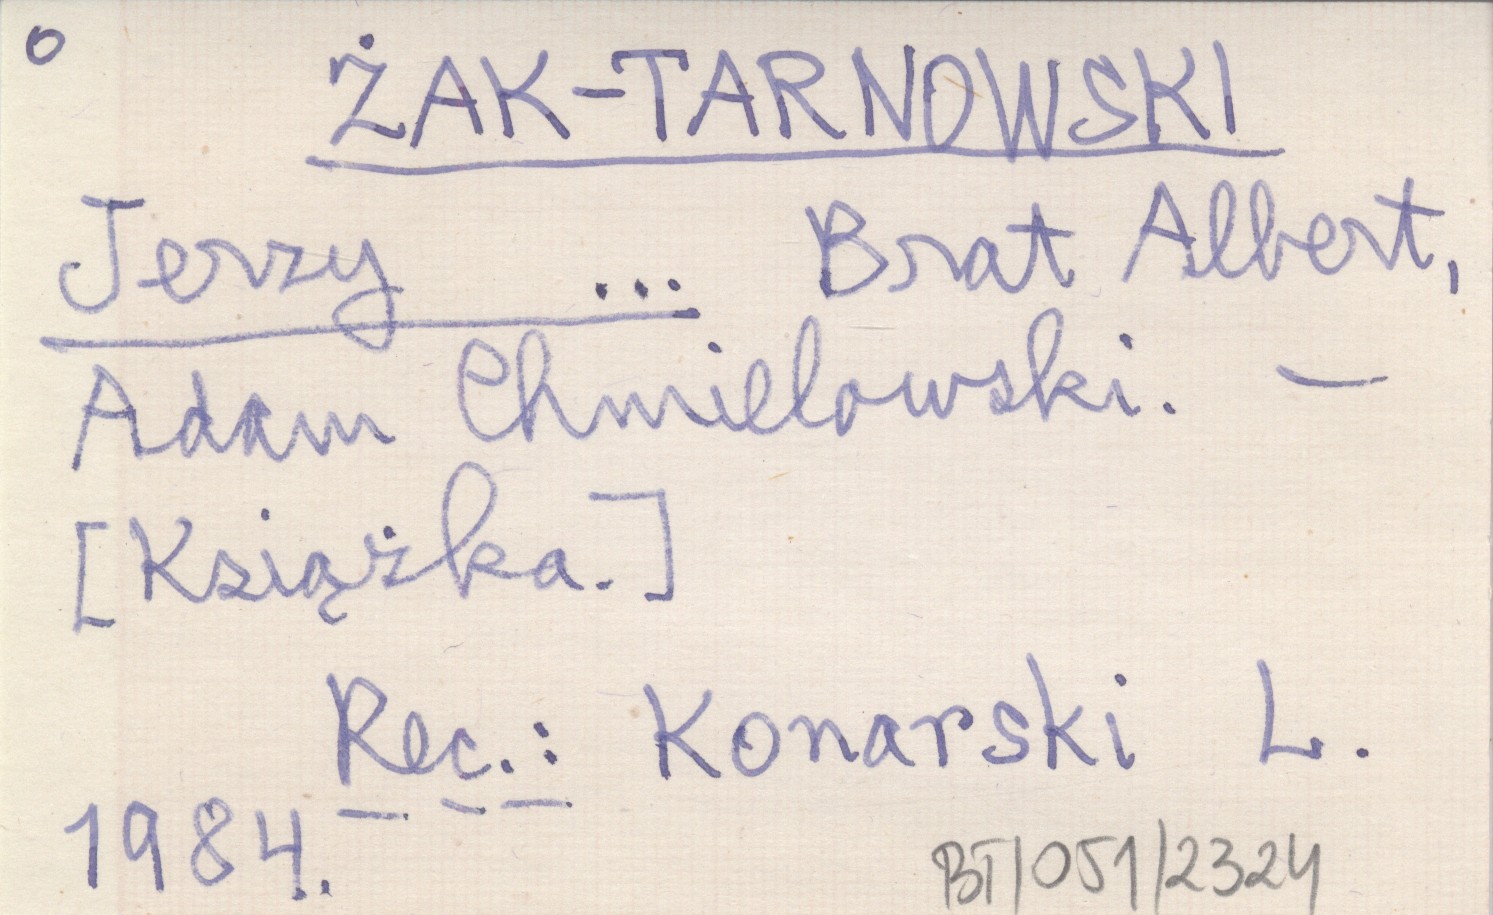 o
ŻAK-TARNOWSKI
Jerzy ... Brat Albert,
Adam Chmielowski. —
[Książka.]
Rec.: Konarski L.
1984.
BT/051/2324